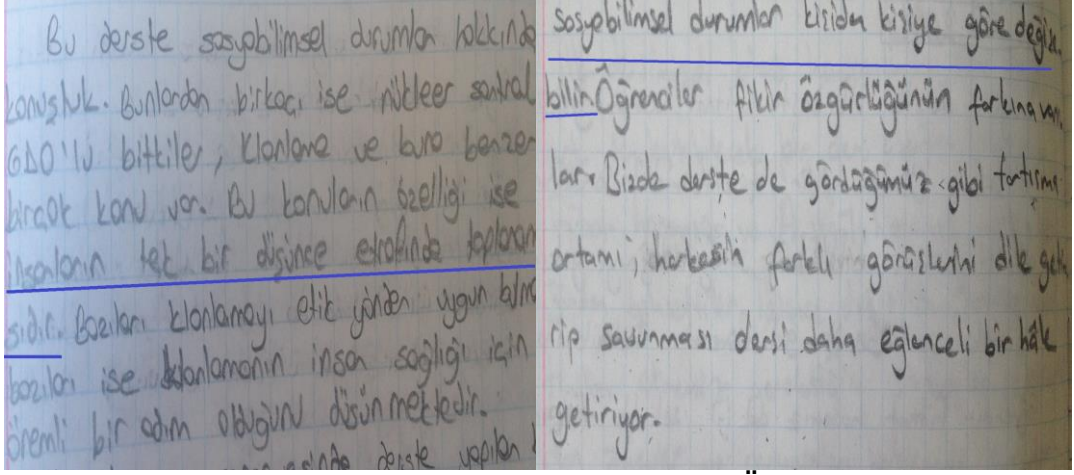 Bu derste sosyobilimsel durumlar hakkında
konuştuk. Bunlardan birkaçı ise nükleer santral
GDO'lu bitkiler, klonlama ve buna benzer
birçok konu var. Bu konuların özelliği ise
insanların tek bir düşünce etrafında toplanan
sıdır. Bazıları klonlamayı etik yönden uygun
bazıları ise klonlamanın insan sağlığı için
önemli bir adım olduğunu düşünmektedir.
derste yapılan
sosyobilimsel durumlar kişiden kişiye göre değişe
bilir. Öğrenciler fikir özgürlüğünün farkına var
lar. Bizde derste de gördüğümüz gibi tartışma
ortamı, herkesin farklı görüşlerini dile geti
rip savunması dersi daha eğlenceli bir hâle
getiriyor.